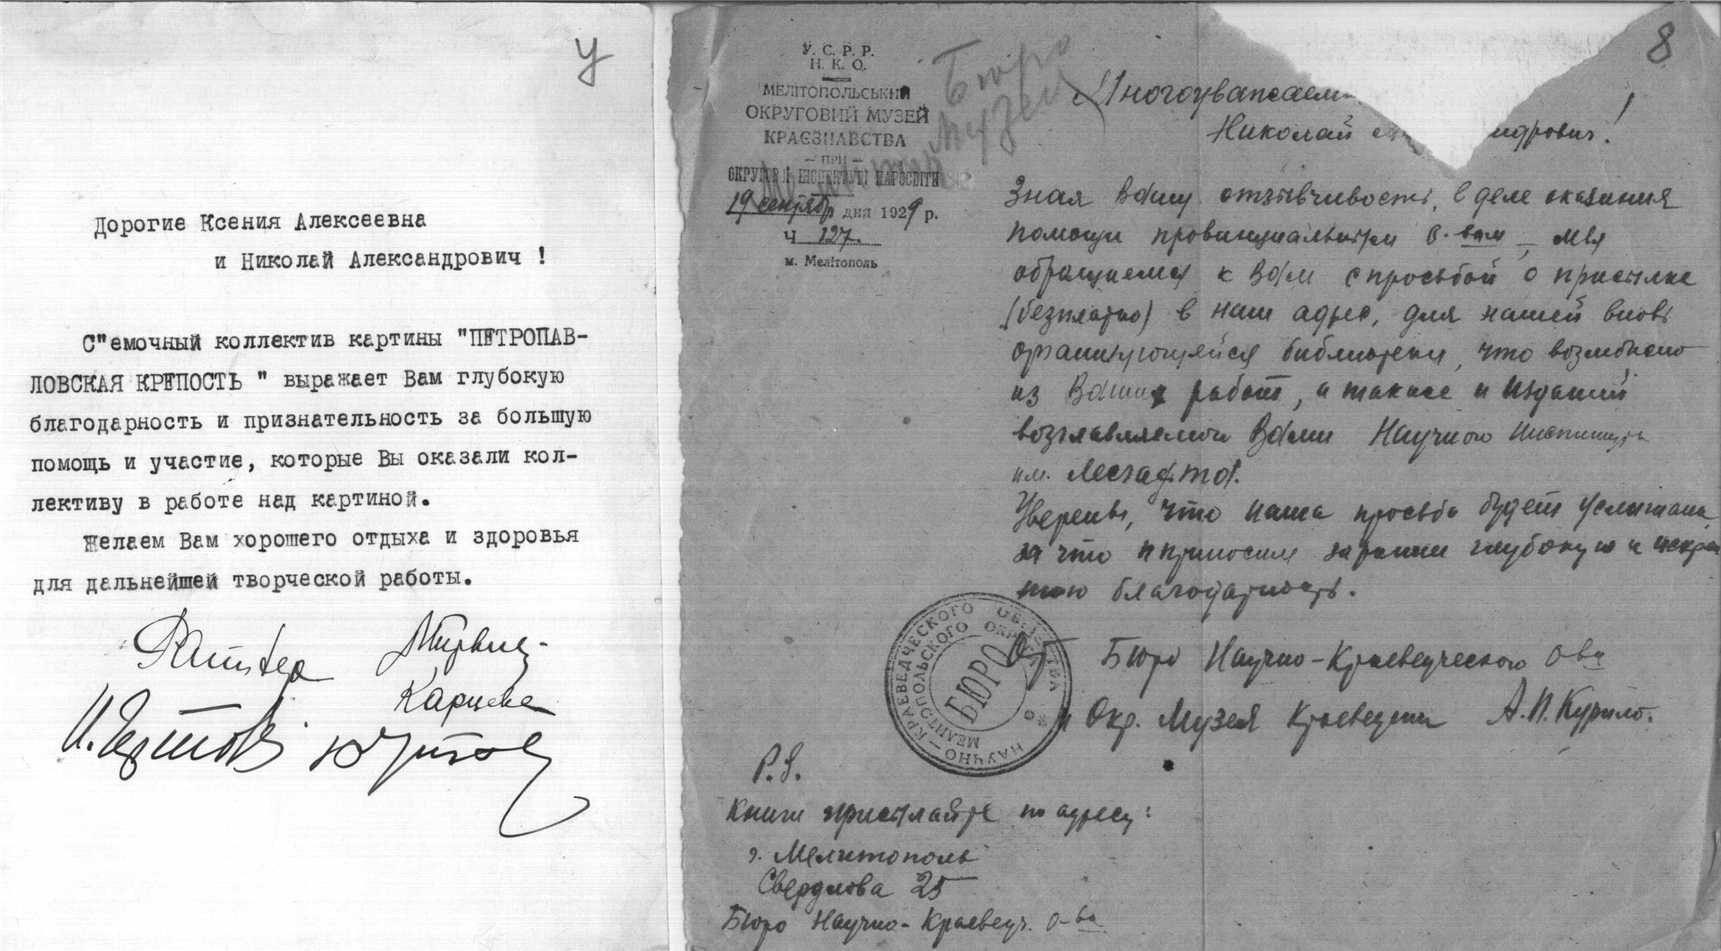 У
Дорогие Ксения Алексеевна
и Николай Александрович !
С"емочный коллектив картины "ПЕТРОПАВ-
ЛОВСКАЯ КРЕПОСТЬ " выражает Вам глубокую
благодарность и признательность за большую
помощь и участие, которые Вы оказали кол-
лективу в работе над картиной.
Желаем Вам хорошего отдыха и здоровья
для дальнейшей творческой работы.
8
Бюро
Музей
У. С. Р. Р.
Н. К. О.
МЕЛІТОПОЛЬСЬКИЙ
ОКРУГОВИЙ МУЗЕЙ
КРАЄЗНАВСТВА
— ПРИ —
ОКРУГОВІЙ ІНСПЕКТУРІ НАРОСВІТИ
19 сентябр дня 1929 р.
Ч 127.
м. Мелітополь
Многоуважаем
Николай дрович!
Зная Вашу отзывчивость, в деле оказания
помощи провинциальным о-вам, мы
обращаемся к Вам с просьбой о присылке
(безплатно) в наш адрес, для нашей вновь
организующейся библиотеки, что возможно
из Ваших работ, а также и изданий
возглавляемого Вами Научного Института
им. Лесгафта.
Уверены, что наша просьба будет услышана,
за что и приносим заранее глубокую и искрен
нюю благодарность.
От Бюро Научно-Краеведческого О-ва
и Окр. Музея Краеведения А.П. Курило.
НАУЧНО-КРАЕВЕДЧЕСКОГО ОБЩЕСТВА
МЕЛИТОПОЛЬСКОГО ОКРУГА
БЮРО
P.S.
Книги присылайте по адресу:
г. Мелитополь
Свердлова 25
Бюро Научно-Краевед. О-ва